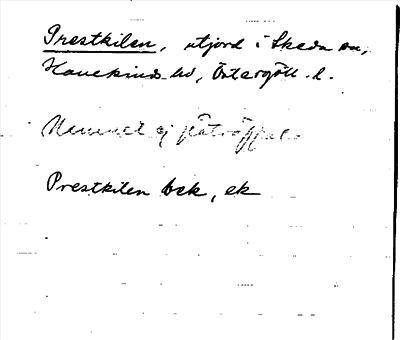 Prestkilen, utjord i Skeda sn,
Hanekinds hd, Östergötl. l.
Namnet ej påträffat
Prestkilen bek, ek